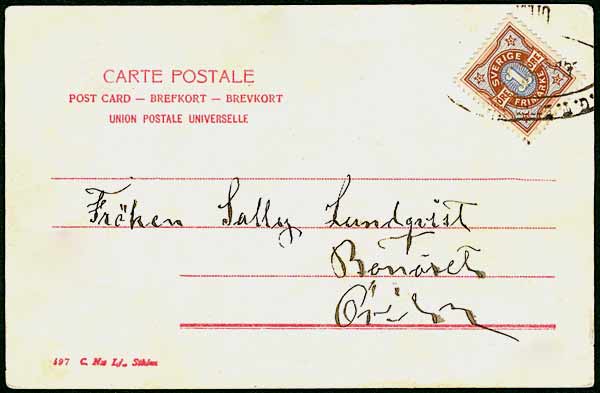 CARTE POSTALE
POST CARD — BREFKORT — BREVKORT
UNION POSTALE UNIVERSELLE
SVERIGE
1
FRIMÄRKE
Fröken Sally Lundqvist
497 C. Sthlm